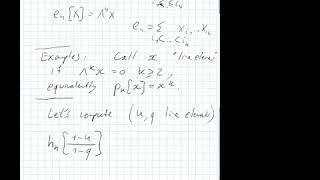 e_n[X] = Λ^n X
e_n = Σ x_{i_1} ... x_{i_n}
i_1 < ... < i_n
Examples: Call x "line element"
if Λ^k x = 0 k ≥ 2,
equivalently p_k[x] = x^k.
Let's compute (u, q line elements)
h_n [ (1-u)/(1-q) ]